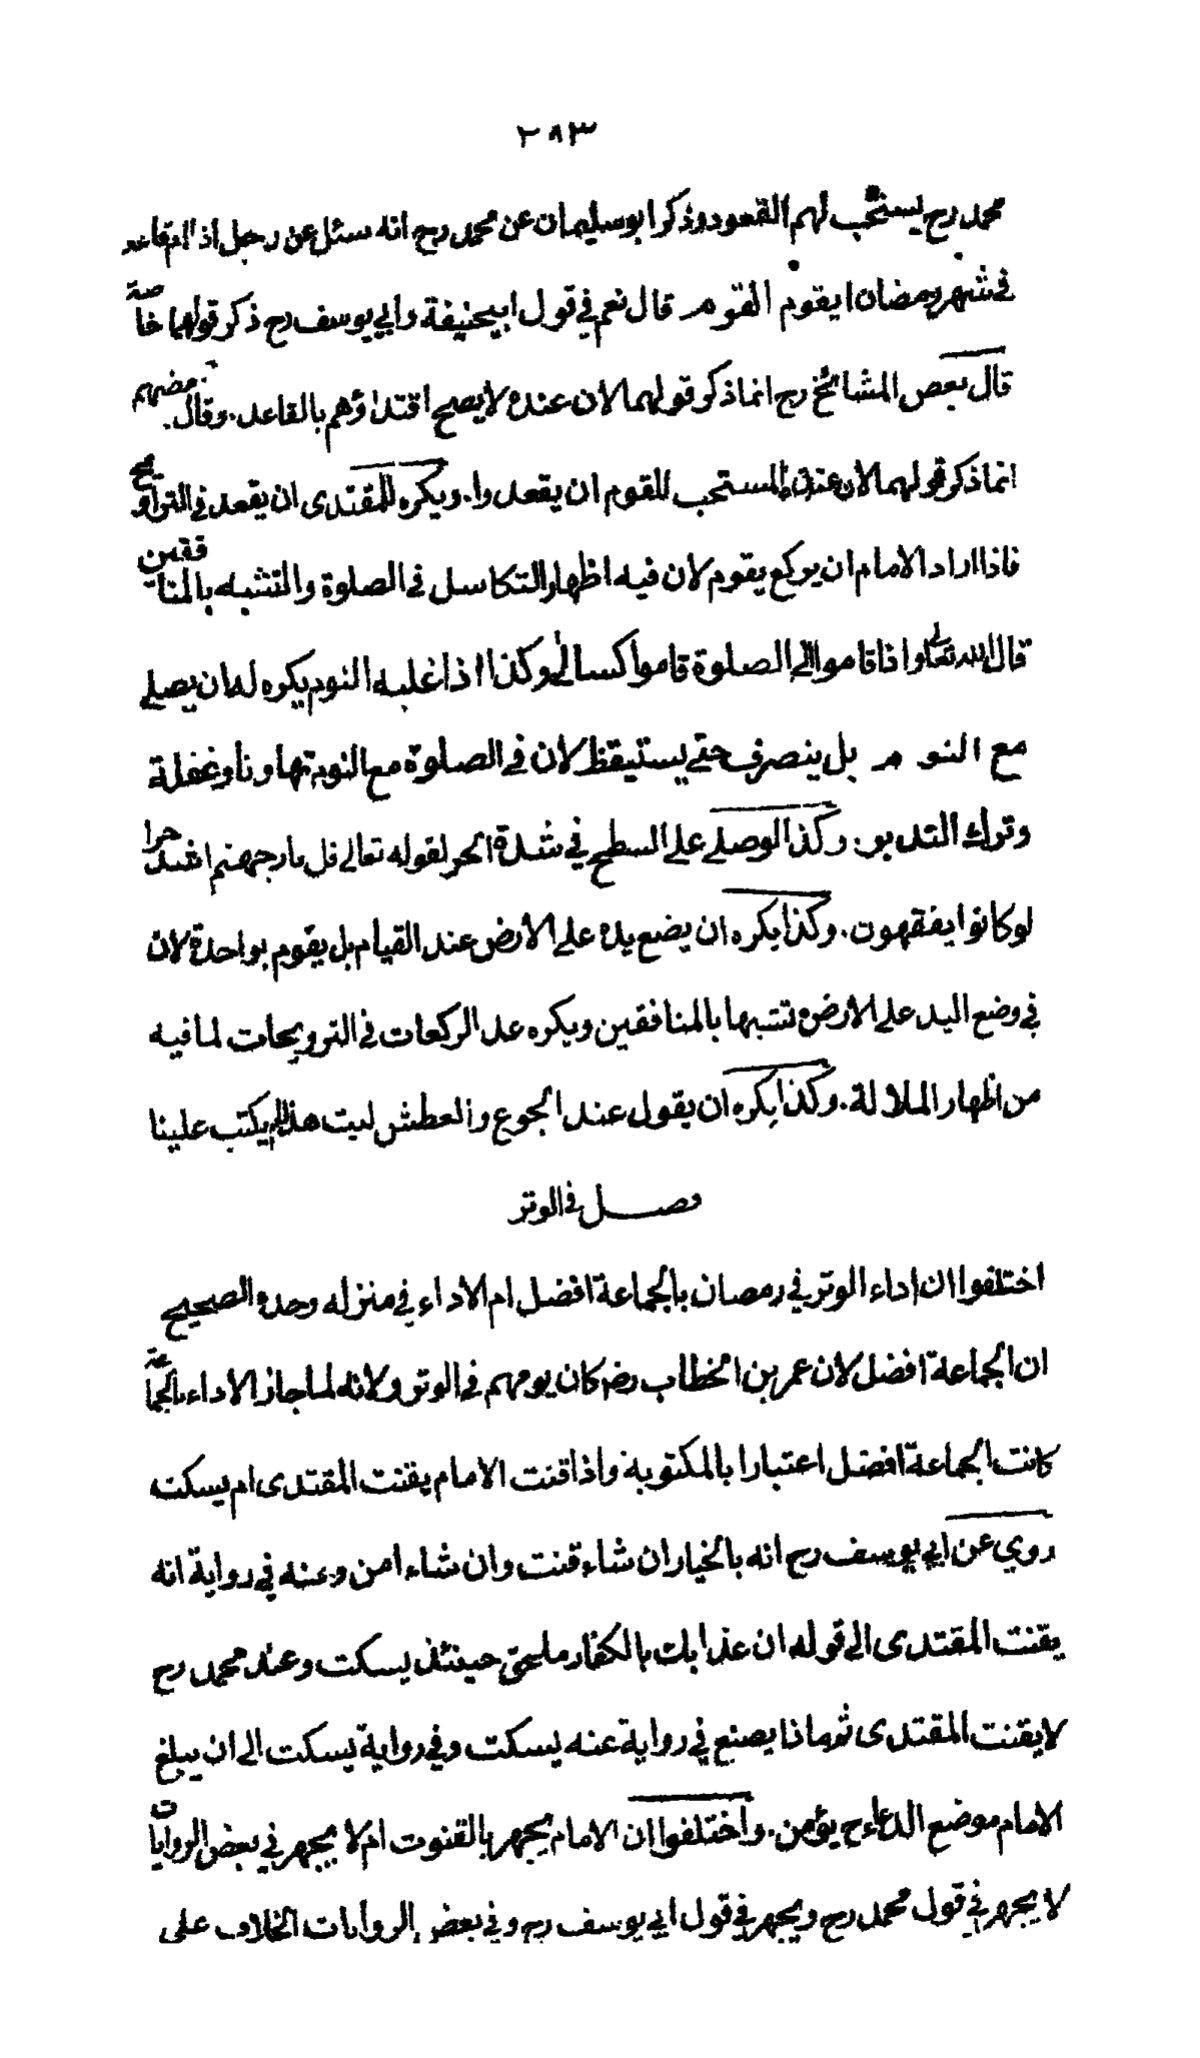 ٢٨٣
محمد رح يستحب لهم القعود وذكر ابو سليمان عن محمد رح انه سئل عن رجل اذا ام قاعد
في شهر رمضان ايقوم القوم قال نعم في قول ابيحنيفة وابي يوسف رح ذكر قولهما خاصة
قال بعض المشائخ رح انما ذكر قولهما لان عنده لا يصح اقتداؤهم بالقاعد. وقال بعضهم
انما ذكر قولهما لان عنده المستحب للقوم ان يقعدوا. ويكره للمقتدى ان يقعد في التراويح
فاذا اراد الامام ان يركع يقوم لان فيه اظهار التكاسل في الصلوة والتشبه بالمنافقين
قال الله تعالى واذا قاموا الى الصلوة قاموا كسالى وكذا اذا غلبه النوم يكره له ان يصلي
مع النوم بل ينصرف حتى يستيقظ لان في الصلوة مع النوم تهاونا وغفلة
وترك التدبر. وكذا لو صلى على السطح في شدة الحر لقوله تعالى قل نار جهنم اشد حرا
لو كانوا يفقهون. وكذا يكره ان يضع يده على الارض عند القيام بل يقوم بواحدة لان
في وضع اليد على الارض تشبها بالمنافقين ويكره عد الركعات في الترويحات لما فيه
من اظهار الملالة. وكذا يكره ان يقول عند الجوع والعطش ليت هذا لم يكتب علينا
فصل في الوتر
اختلفوا ان اداء الوتر في رمضان بالجماعة افضل ام الاداء في منزله وحده الصحيح
ان الجماعة افضل لان عمر بن الخطاب رضه كان يومهم في الوتر ولانه لما جاز الاداء بالجماعة
كانت الجماعة افضل اعتبارا بالمكتوبة واذا قنت الامام يقنت المقتدى ام يسكت
روي عن ابي يوسف رح انه بالخيار ان شاء قنت وان شاء امن وعنه في رواية انه
يقنت المقتدى الى قوله ان عذابك بالكفار ملحق حينئذ يسكت وعند محمد رح
لا يقنت المقتدى ثم ماذا يصنع في رواية عنه يسكت وفي رواية يسكت الى ان يبلغ
الامام موضع الدعاء ح يؤمن. واختلفوا ان الامام يجهر بالقنوت ام لا يجهر في بعض الروايات
لا يجهر في قول محمد رح ويجهر في قول ابي يوسف رح وفي بعض الروايات الخلاف على